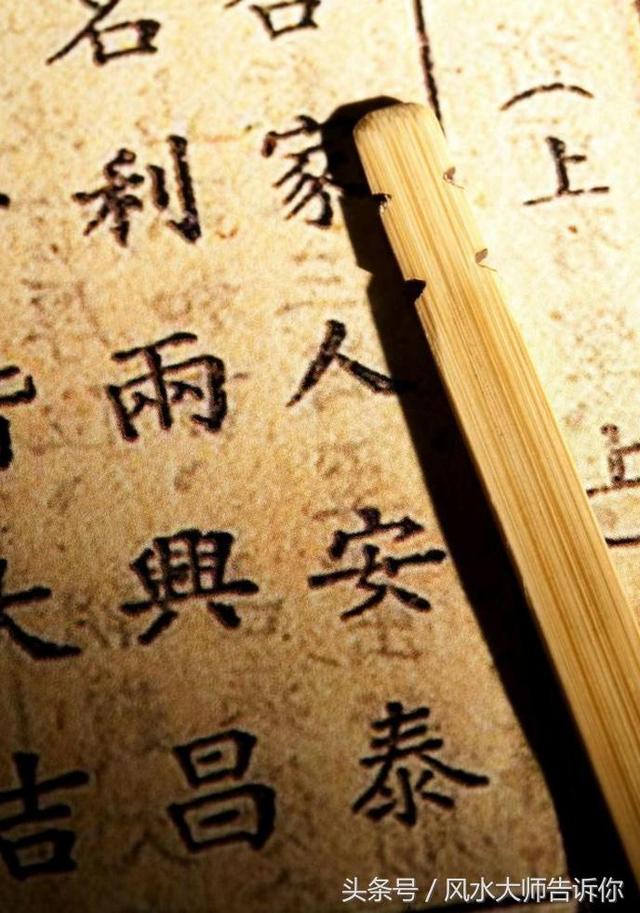 （上
家人安泰
名利兩興昌
吉
头条号 / 风水大师告诉你